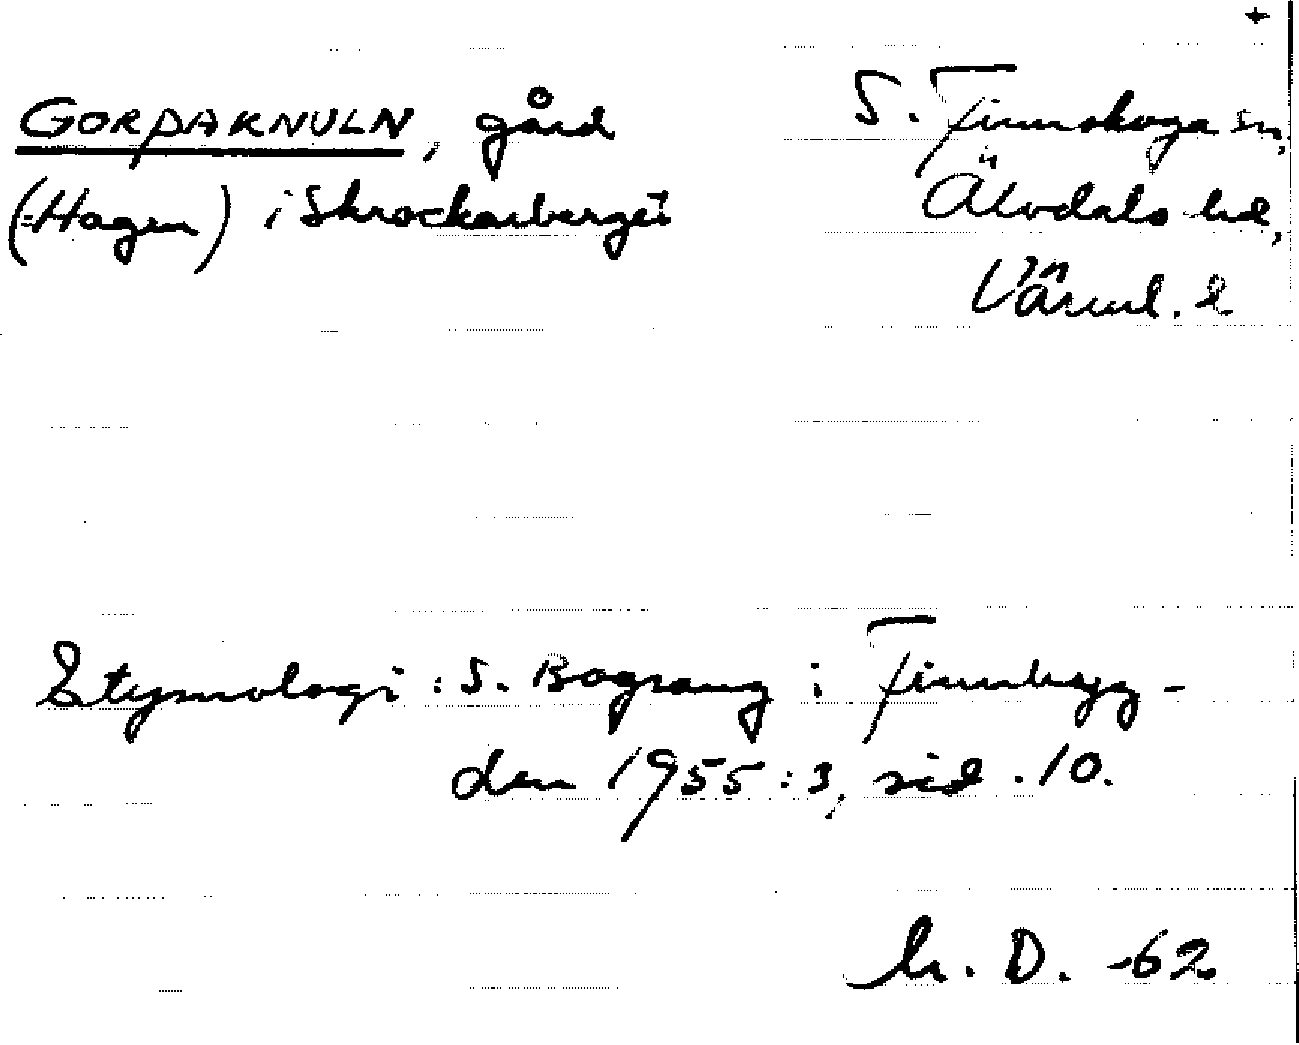 +
GORPAKNULN, gård
(Hagen) i Skrockarberget
S. Finnskoga sn,
Älvdals hd,
Värml. l
Etymologi: S. Bograng i Finnbyg-
den 1955:3, sid. 10.
D. -62